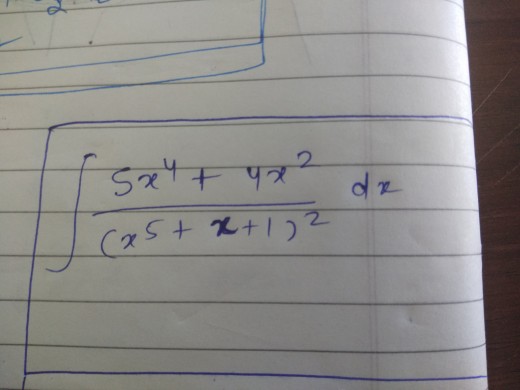 ∫ (5x⁴ + 4x²) / (x⁵ + x + 1)² dx